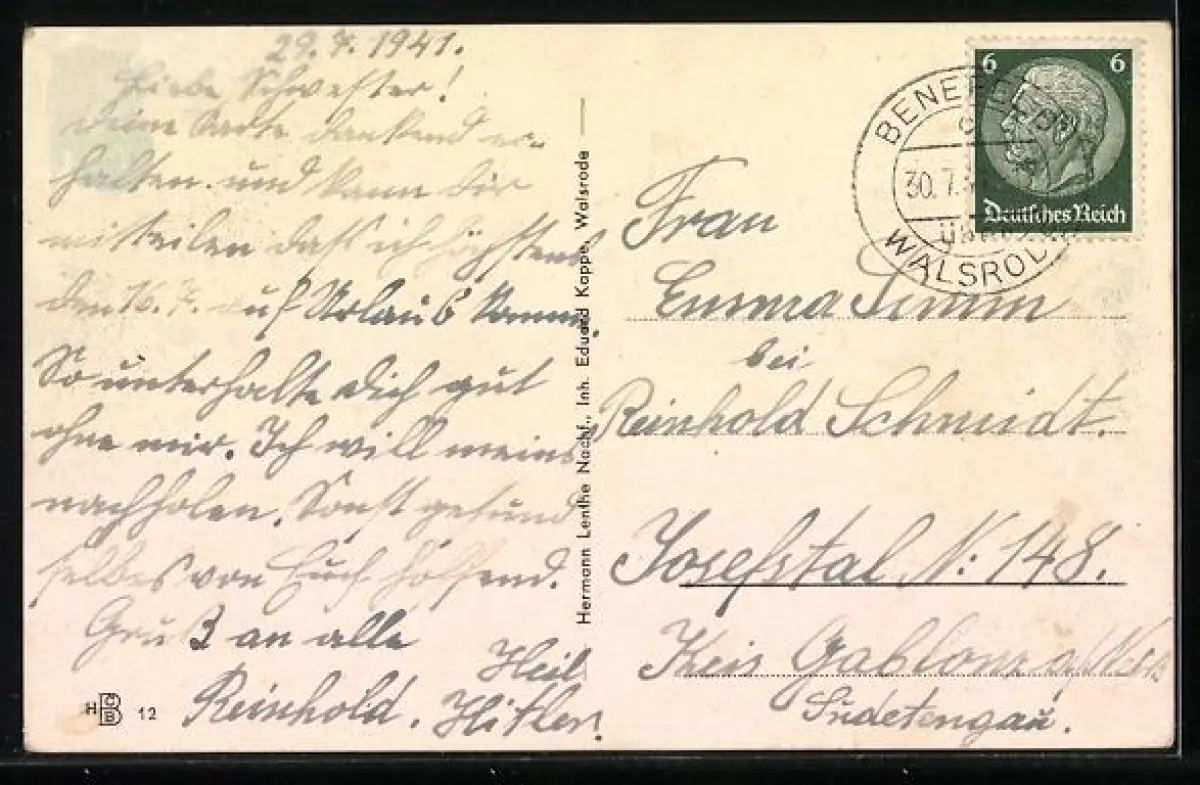 29.7.1941.
Liebe Schwester!
Deine Karte dankend er-
halten. und kann dir
mitteilen daß ich höchstens
den 16. 7. auf Urlaub komme.
So unterhalte Dich gut
ohne mir. Ich will meins
nachholen. Sonst gesund
selbes von Euch hoffend.
Gruß an alle
Reinhold. Heil
Hitler!
HBCB 12
Hermann Lenthe Nachf., Inh. Eduard Kappe, Walsrode
6 6
Deutsches Reich
BENEFELD
30.7.
über
WALSRODE
Frau
Emma Simm
bei
Reinhold Schmidt.
Josefstal N: 148.
Kreis Gablonz a/Neiße
Sudetengau.